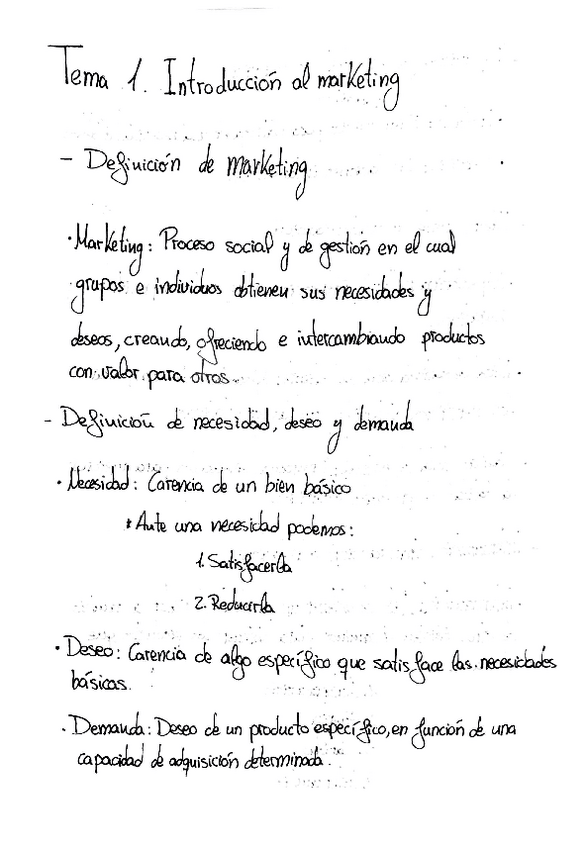 Tema 1. Introducción al marketing
- Definición de marketing
· Marketing: Proceso social y de gestión en el cual
grupos e individuos obtienen sus necesidades y
deseos, creando, ofreciendo e intercambiando productos
con valor para otros.
- Definición de necesidad, deseo y demanda
· Necesidad: Carencia de un bien básico
* Ante una necesidad podemos:
1. Satisfacerla
2. Reducirla
· Deseo: Carencia de algo específico que satisface las necesidades
básicas.
· Demanda: Deseo de un producto específico, en función de una
capacidad de adquisición determinada.